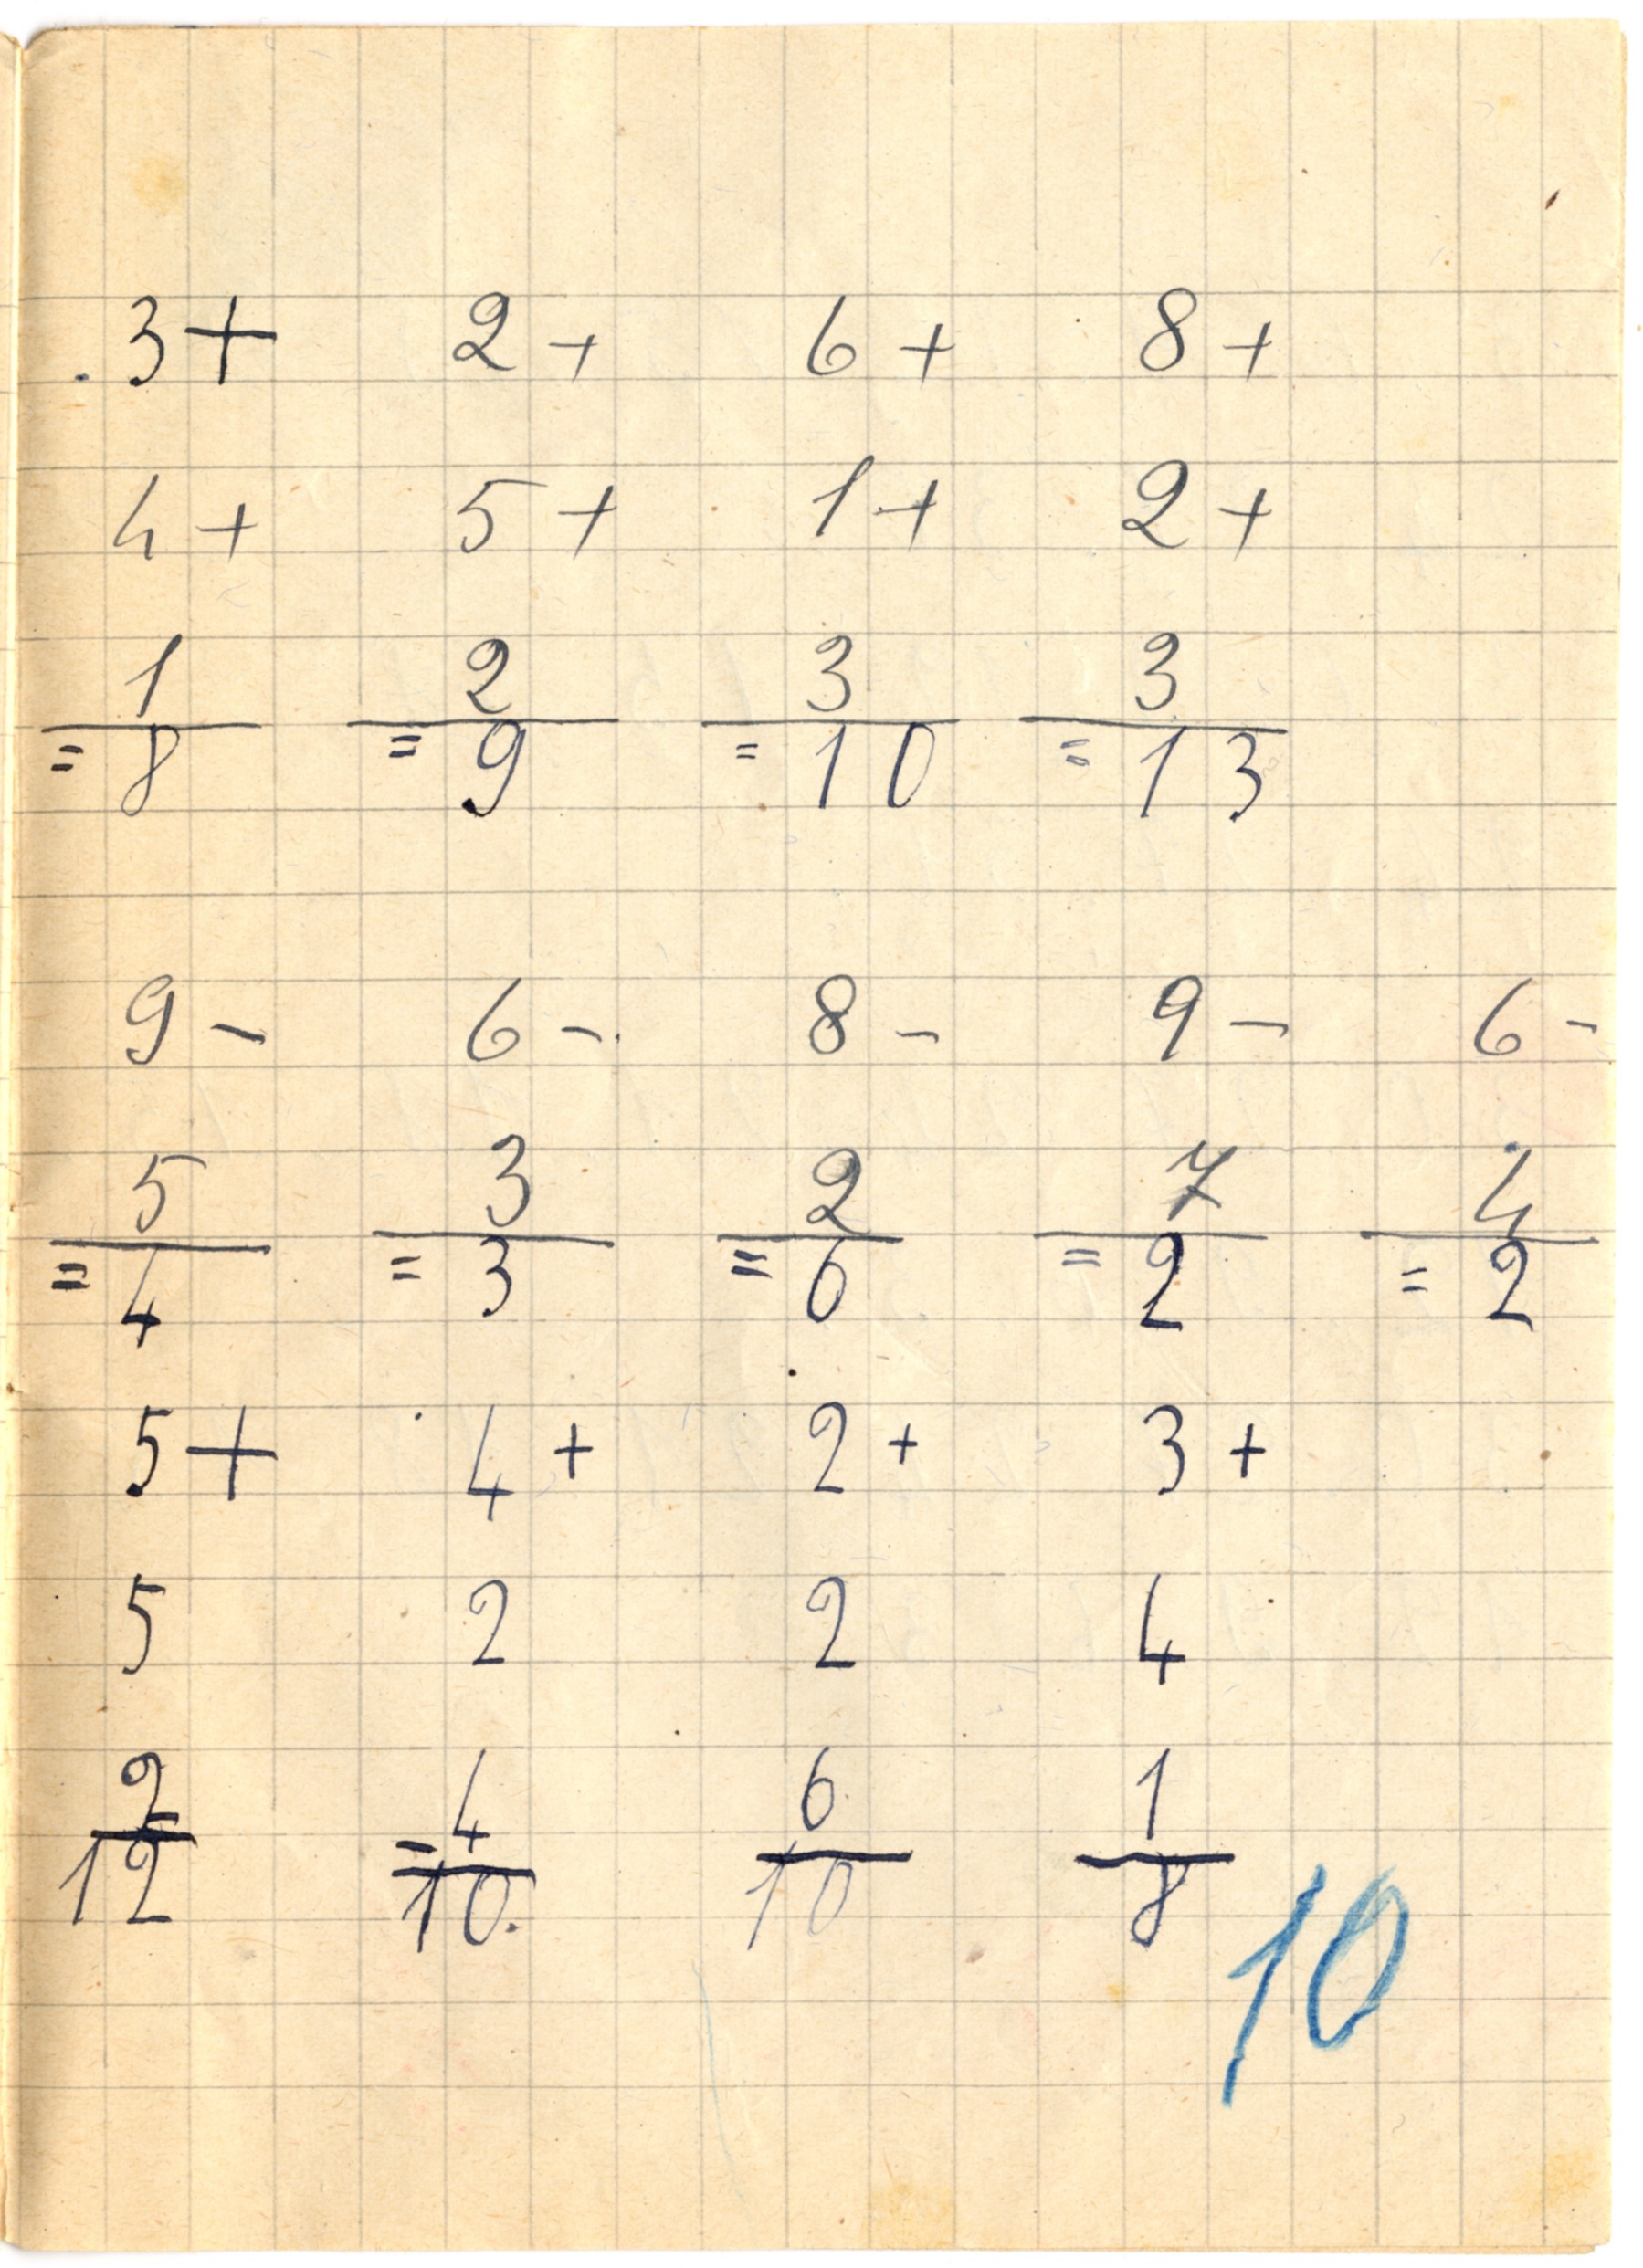 3+ 2+ 6+ 8+
4+ 5+ 1+ 2+
1 2 3 3
=8 =9 =10 =13
9- 6- 8- 9- 6-
5 3 2 7 4
=4 =3 =6 =2 =2
5+ 4+ 2+ 3+
5 2 2 4
2 4 6 1
=12 =10. 10 8
10